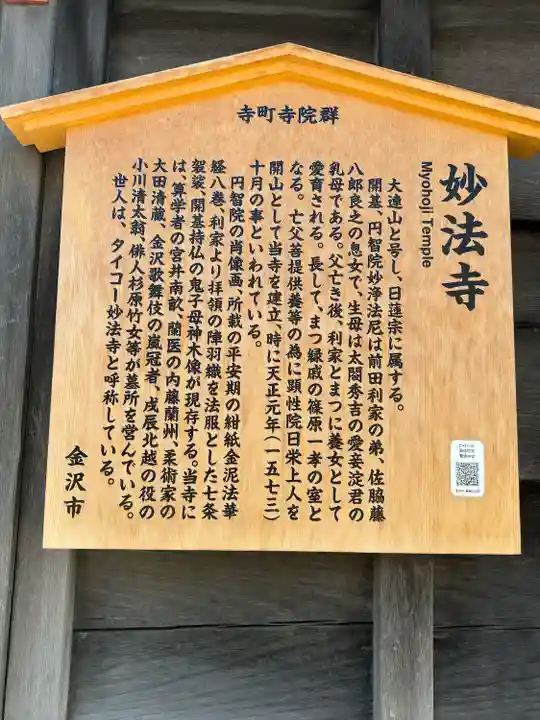 寺町寺院群
妙法寺
Myohoji Temple
大連山と号し、日蓮宗に属する。
開基、円智院妙浄法尼は前田利家の弟、佐脇藤
八郎良之の息女で、生母は太閤秀吉の愛妾淀君の
乳母である。父亡き後、利家とまつに養女として
愛育される。長して、まつ縁戚の篠原一孝の室と
なる。亡父菩提供養等の為に顕性院日栄上人を
開山として当寺を建立、時に天正元年(一五七三)
十月の事といわれている。
円智院の肖像画、所載の平安期の紺紙金泥法華
経八巻、利家より拝領の陣羽織を法服とした七条
袈裟、開基持仏の鬼子母神木像が現存する。当寺に
は、算学者の宮井南畝、蘭医の内藤蘭州、柔術家の
大田清蔵、金沢歌舞伎の嵐冠者、戊辰北越の役の
小川清太翁、俳人杉原竹女等が墓所を営んでいる。
世人は、タイコー妙法寺と呼称している。
金沢市